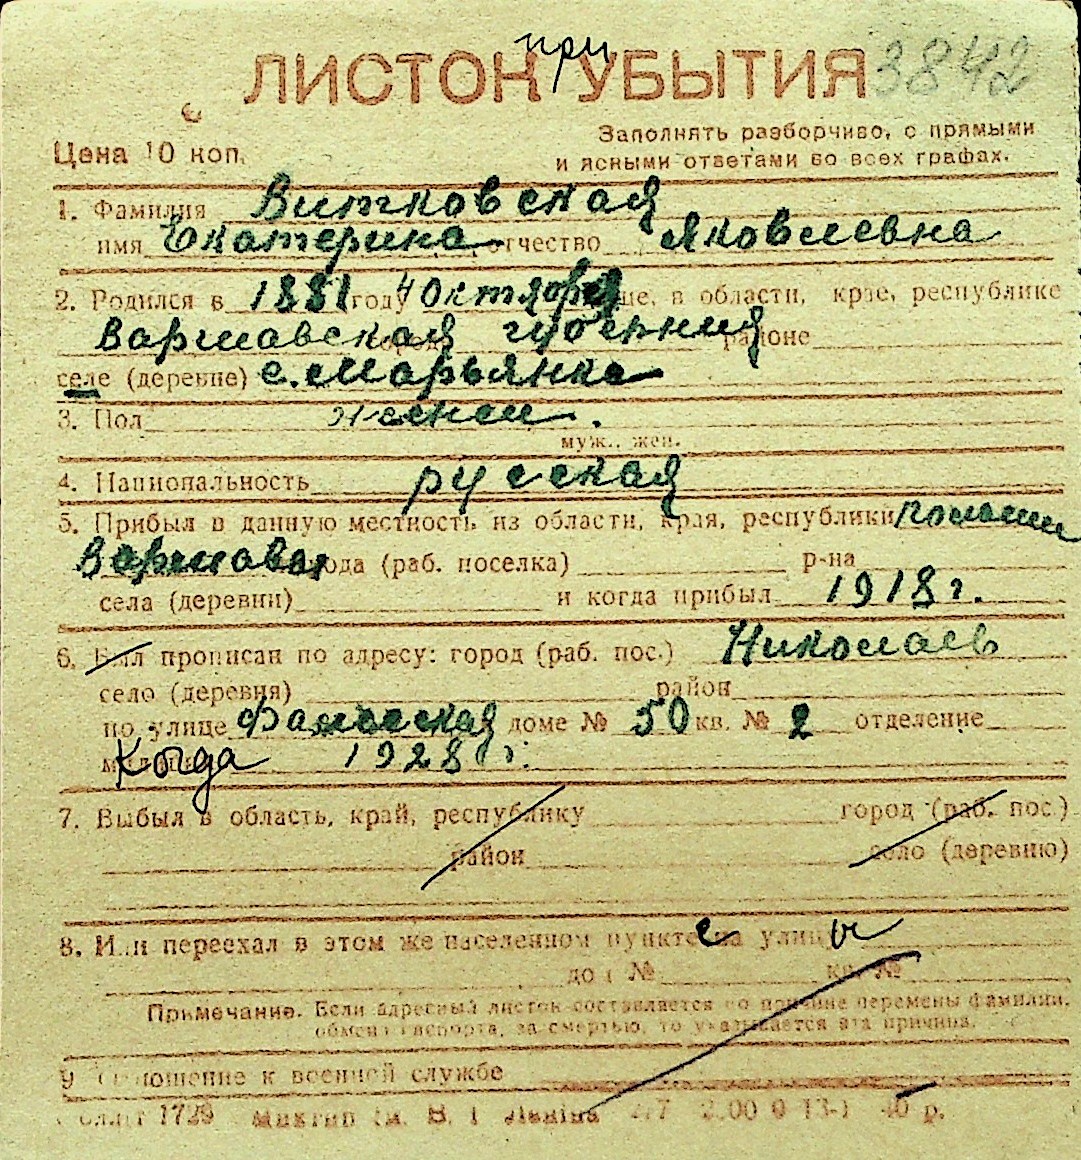 при
ЛИСТОК УБЫТИЯ 3842
Цена 10 коп.
Заполнять разборчиво, с прямыми
и ясными ответами во всех графах.
1. Фамилия Витковская
имя Екатерина отчество Яковлевна
2. Родился в 1881 году 4 октября в области, крае, республике
Варшавская губерния районе
селе (деревне) с. Марьянка
3. Пол женск.
муж., жен.
4. Национальность русская
5. Прибыл в данную местность из области, края, республики Польши
Варшавы города (раб. поселка) р-на
села (деревни) и когда прибыл 1918 г.
6. Был прописан по адресу: город (раб. пос.) Николаев
село (деревня) район
по улице доме № 50 кв. № 2 отделение
Когда 1928 г.
7. Выбыл в область, край, республику город (раб. пос.)
район село (деревню)
8. Или переехал в этом же населенном пункте с на улицы
дом № кв. №
Примечание. Если адресный листок составляется по причине перемены фамилии,
обмена паспорта, за смертью, то указывается эта причина.
9 Отношение к военной службе
1729 им. В. І Леніна 40 р.